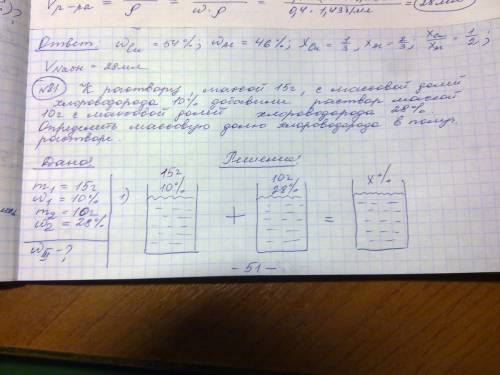 V р-ра = ρ = ω·ρ = 0,4 · 1,43 г/мл = 28мл
Ответ: ω = 54%; ω = 46%; X = 1/3, X = 2/3, = 1/2;
V NaOH = 28мл
№21 К раствору, массой 15г, с массовой долей
хлороводорода 10% добавили раствор массой
10г с массовой долей хлороводорода 28%
Определить массовую долю хлороводорода в получ.
растворе.
Дано: Решение:
m₁ = 15г
ω₁ = 10%
m₂ = 10г
ω₂ = 28%
ω III - ?
1) 15г 10% + 10г 28% = X%
- 51 -